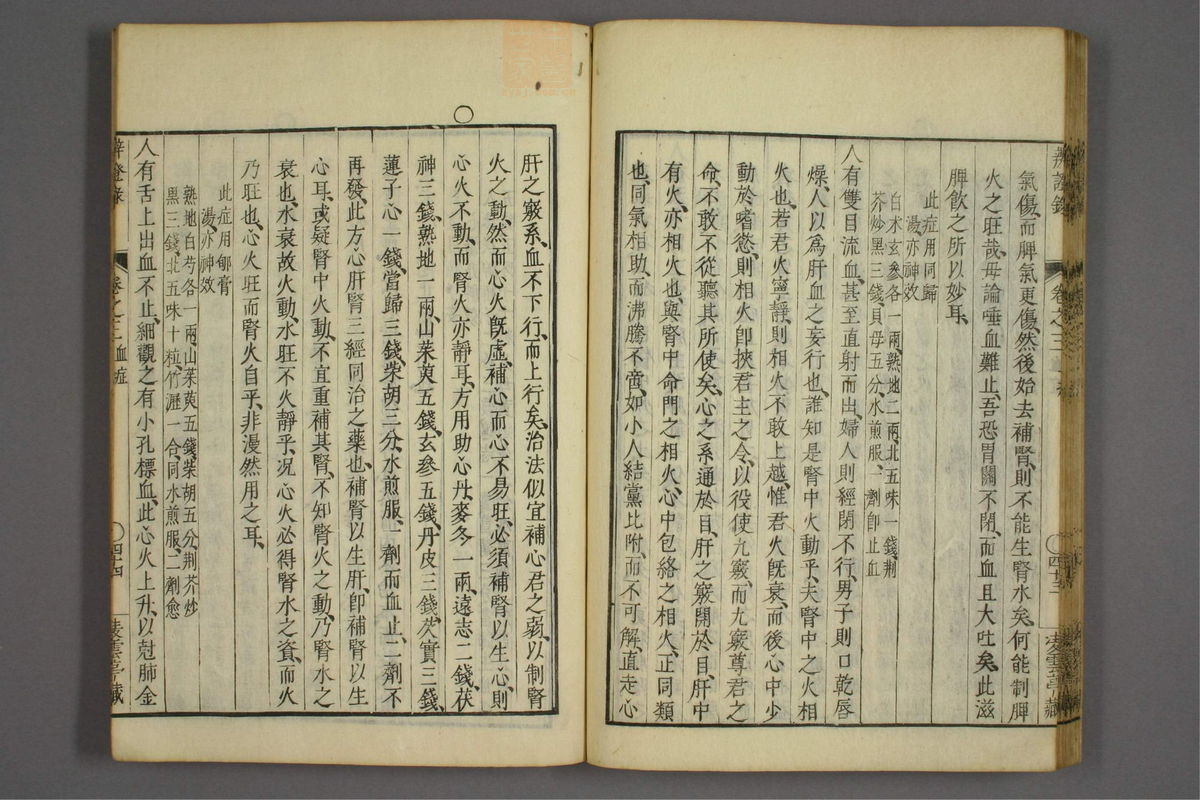 氣傷、而脾氣更傷、然後始去補腎、則不能生腎水矣、何能制脾
火之旺哉、毋論唾血難止、吾恐胃關不閉、而血且大吐矣、此滋
脾飲之所以妙耳、
此症用同歸
湯、亦神效
白术玄參各一兩、熟地二兩、北五味一錢、荆
芥炒黑三錢、貝母五分、水煎服、一劑卽止血
人有雙目流血、甚至直射而出、婦人則經閉不行、男子則口乾唇
燥、人以爲肝血之妄行也、誰知是腎中火動乎、夫腎中之火相
火也、若君火寧靜、則相火不敢上越、惟君火旣衰、而後心中少
動於嗜慾、則相火卽挾君主之令、以役使九竅、而九竅尊君之
命、不敢不從聽其所使矣、心之系通於目、肝之竅開於目、肝中
有火、亦相火也、與腎中命門之相火、心中包絡之相火、正同類
也、同氣相助、而沸騰不啻、如小人結黨比附、而不可解、直走心
卷之三
四十三
凌雲亭藏
肝之竅系、血不下行、而上行矣、治法似宜補心君之弱、以制腎
火之動、然而心火旣虛、補心而心不易旺、必須補腎以生心、則
心火不動、而腎火亦靜耳、方用助心丹、麥冬一兩、遠志二錢、茯
神三錢、熟地一兩、山茱萸五錢、玄參五錢、丹皮三錢、芡實三錢、
蓮子心一錢、當歸三錢、柴胡三分、水煎服、一劑而血止、二劑不
再發、此方心肝腎三經同治之藥也、補腎以生肝、卽補腎以生
心耳、或疑腎中火動、不宜重補其腎、不知腎火之動、乃腎水之
衰也、水衰故火動、水旺不火靜乎、况心火必得腎水之資、而火
乃旺也、心火旺而腎火自平、非漫然用之耳、
此症用郁膏
湯、亦神效
熟地白芍各一兩、山茱萸五錢、柴胡五分、荆芥炒
黑三錢、北五味十粒、竹瀝一合、同水煎服、二劑愈
人有舌上出血不止、細觀之有小孔標血、此心火上升、以尅肺金
卷之三血症
四十四